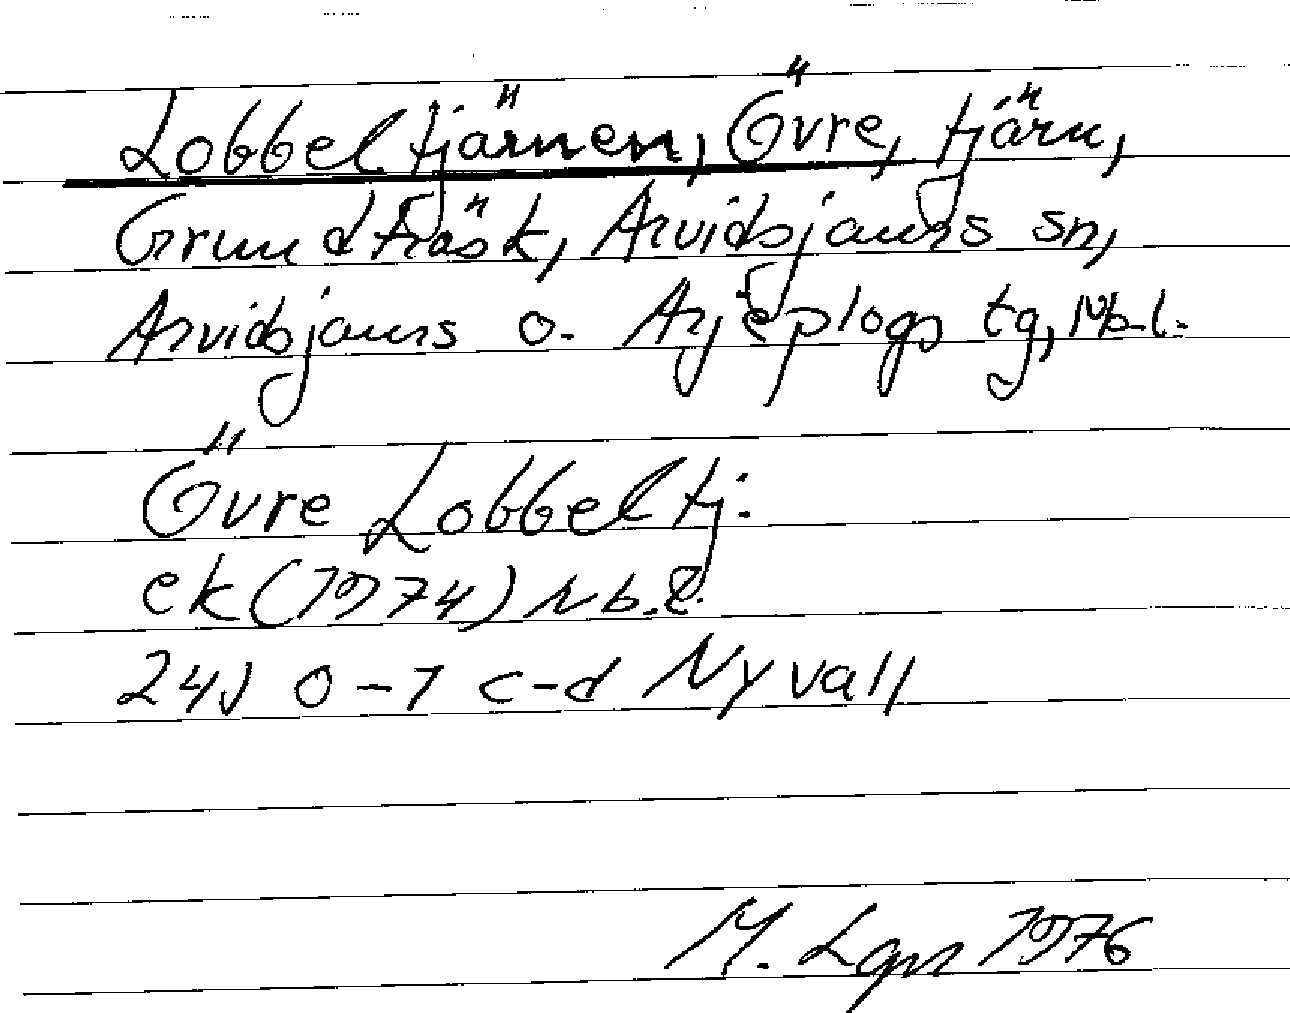 Lobbeltjärnen, Övre, tjärn,
Grundträsk, Arvidsjaurs sn,
Arvidsjaurs o. Arjeplogs tg, Nb.l.
Övre Lobbeltj.
ek (1974) Nb.l.
24J 0-1 c-d Nyvall
M. Lgn 1976